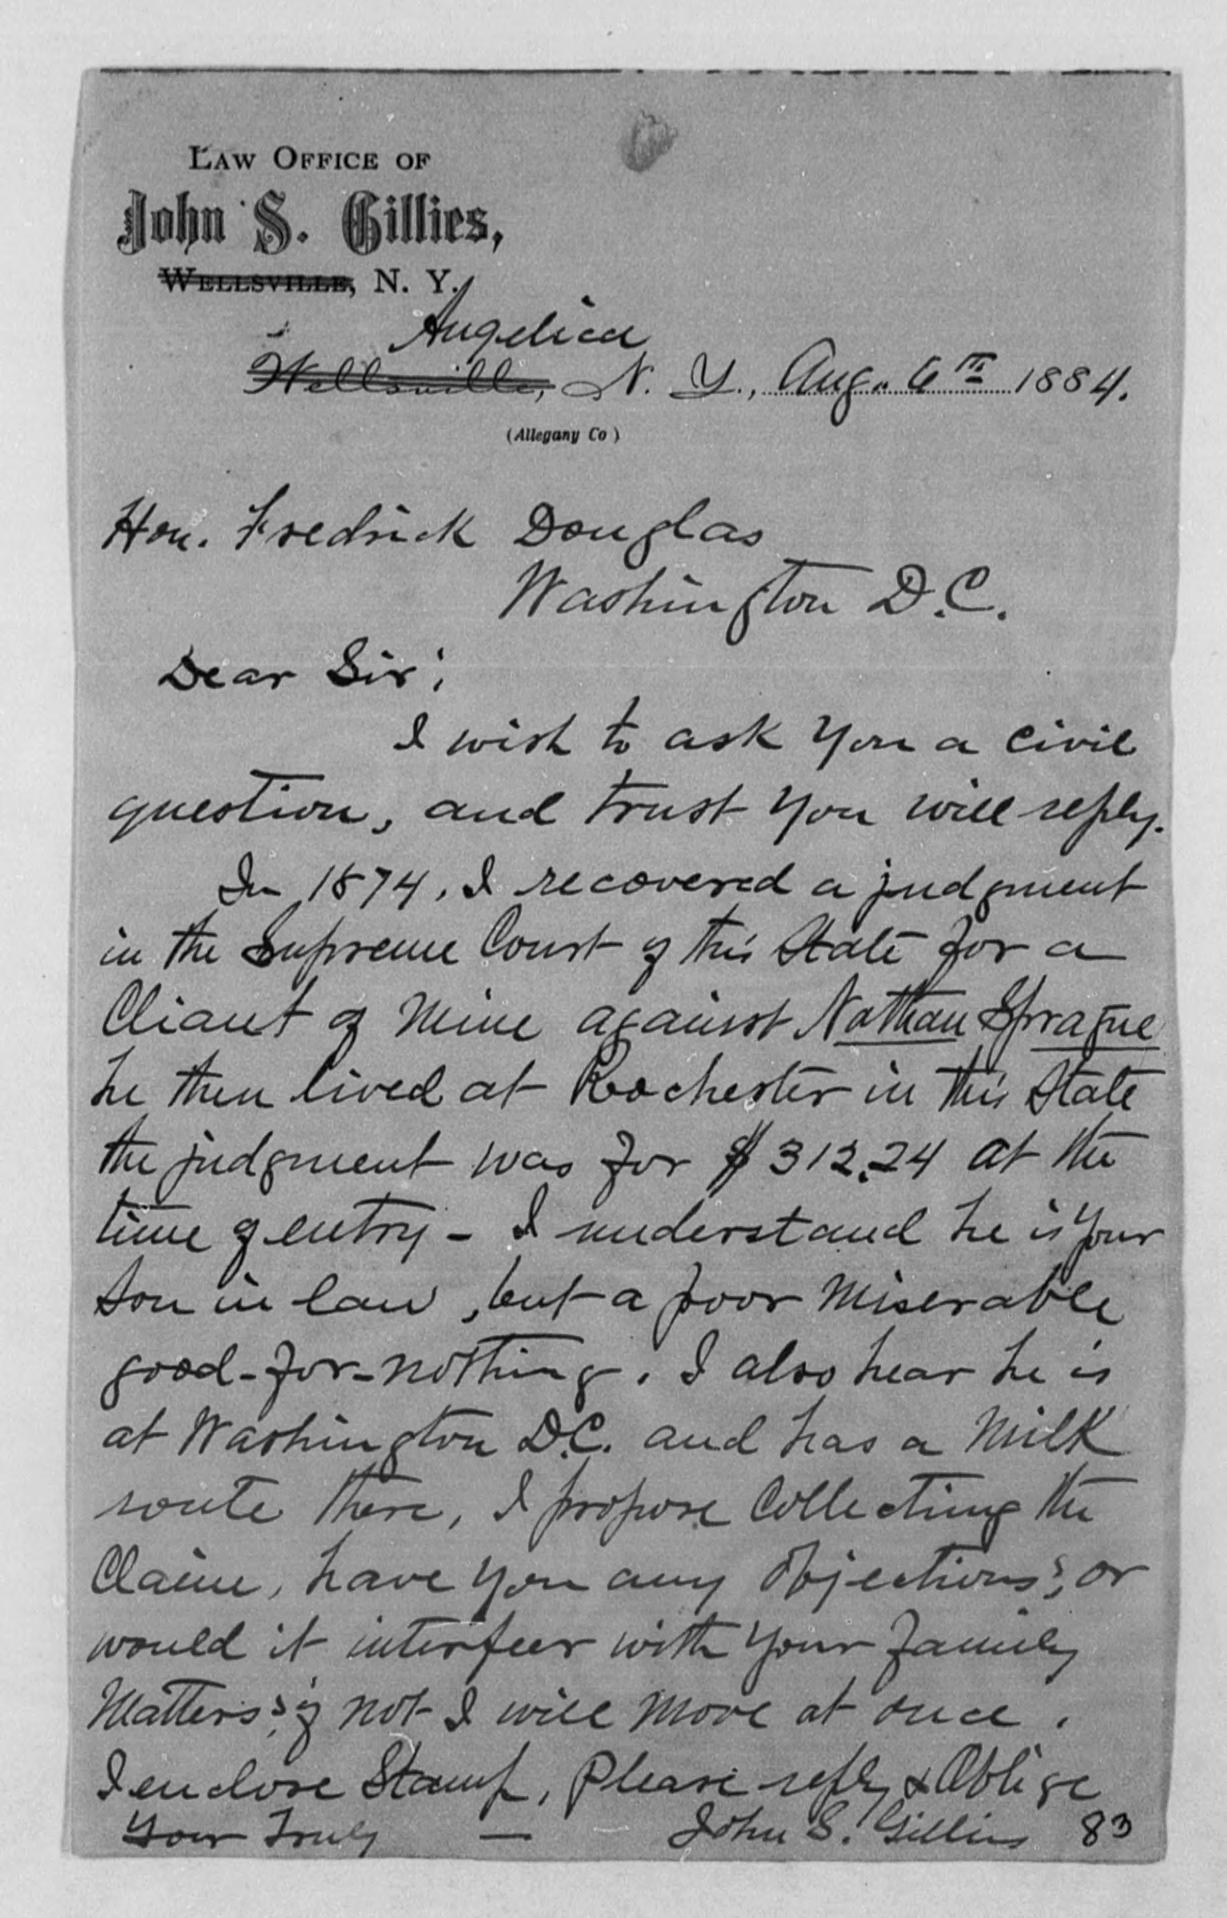 LAW OFFICE OF
John S. Gillies,
WELLSVILLE, N. Y.
Angelica
Wellsville, N. Y., Aug. 6th 1884.
(Allegany Co)
Hon. Fredrick Douglas
Washington D.C.
Dear Sir;
I wish to ask You a Civil
question, and trust You will reply.
In 1874, I recovered a judgment
in the Supreme Court of this State for a
Cliant of Mine against Nathan Sprague
he then lived at Rochester in this State
the judgment was for $312.24 at the
time of entry - I understand he is Your
Son in law, but a poor Miserable
good-for-nothing. I also hear he is
at Washington D.C. and has a Milk
route there, I propose Collecting the
Claim, have You any Objections, or
would it interfeer with Your family
Matters, if not I will Move at once.
I enclose Stamp, Please reply & Oblige
Your Truly — John S. Gillies 83